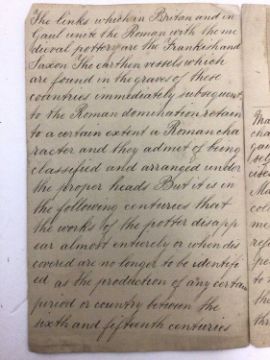 The links which in Britan and in
Gaul unite the Roman with the me
dieval pottery are the Frankish and
Saxon The earthen vessels which
are found in the graves of these
countries immediately subsequent
to the Roman domination retain
to a certain extent a Roman cha
racter and they admit of being
classified and arranged under
the proper heads But it is in
the following centuries that
the works of the potter disapp
ear almost entirely or when dis
covered are no longer to be identifi
ed as the production of any certain
period or country between the
sixth and fifteenth centuries